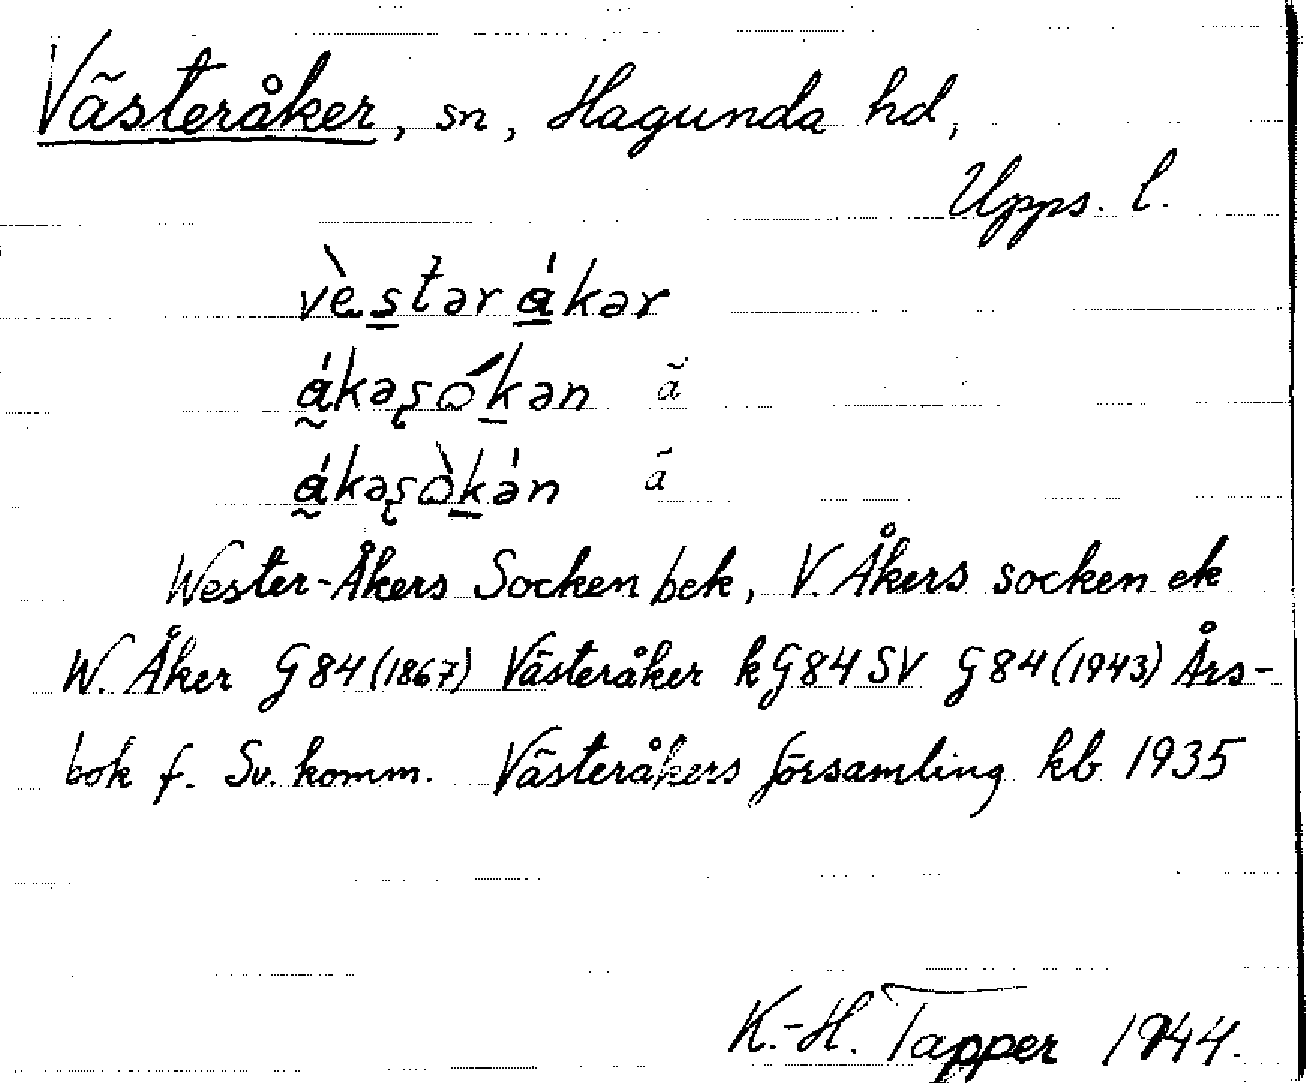 Västeråker, sn, Hagunda hd,
Upps. l.
vèstərákər
ákəʂókən ã
ákəʂòkə́n ã
Wester-Åkers Socken bek, V. Åkers socken ek
W. Åker G84 (1867) Västeråker kG84SV G84 (1943) Års-
bok f. Sv. komm. Västeråkers församling kb 1935
K.-H. Tapper 1944.